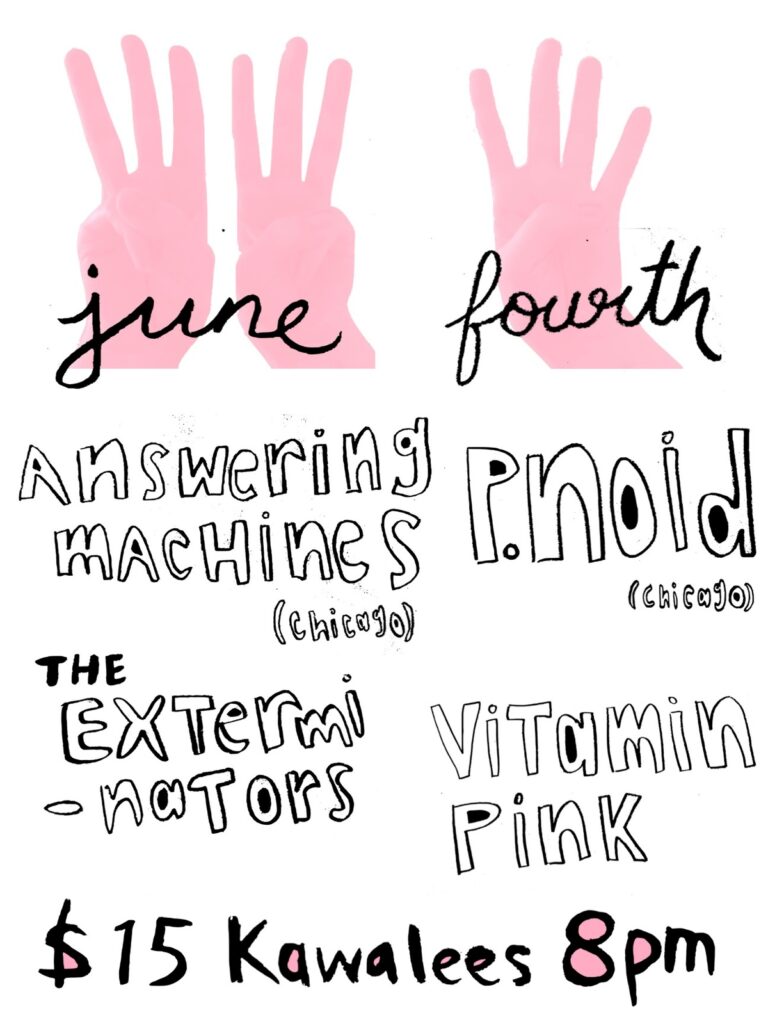 june fourth
Answering
Machines
(chicago)
P.noid
(chicago)
THE
Extermi
-nators
Vitamin
Pink
$15 Kawalees 8pm